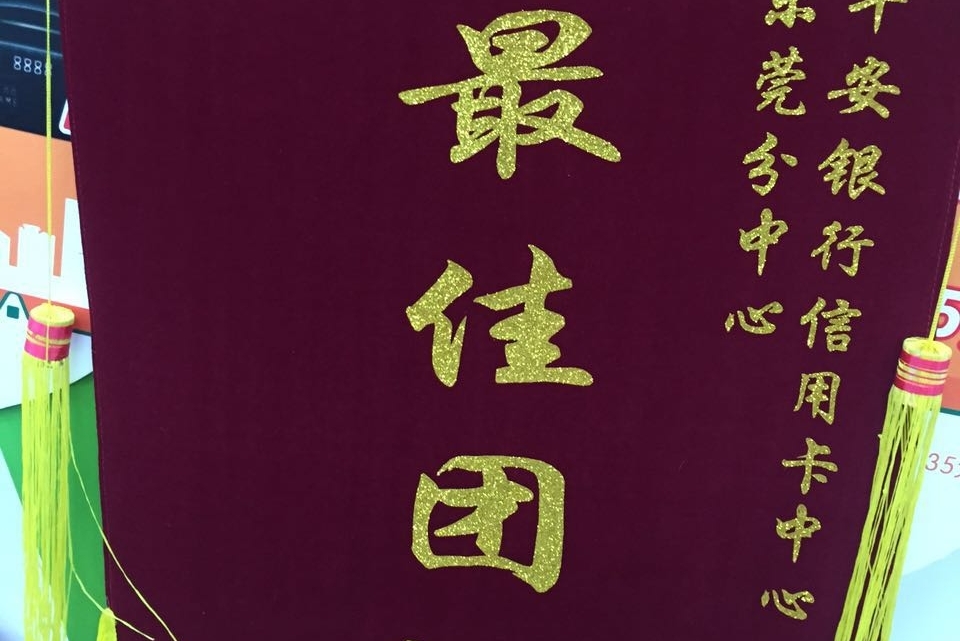 平安银行信用卡中心
东莞分中心
最佳团
8888